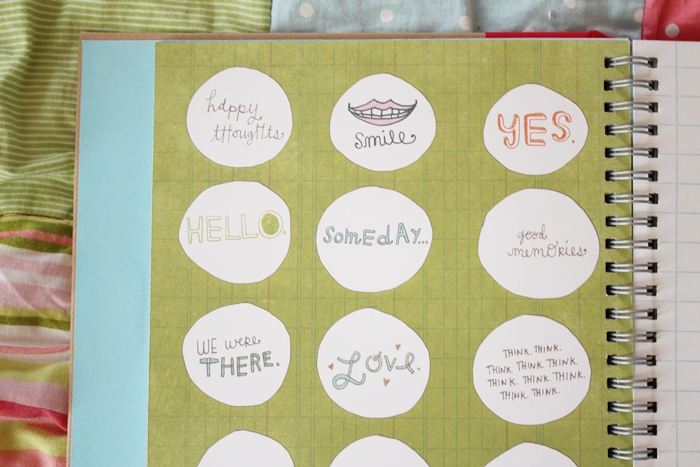 happy
thoughts
smile
YES.
HELLO.
SomEdAy...
good
memories
WE were
THERE.
Love.
THINK. THINK.
THINK. THINK. THINK.
THINK. THINK. THINK.
THINK. THINK.